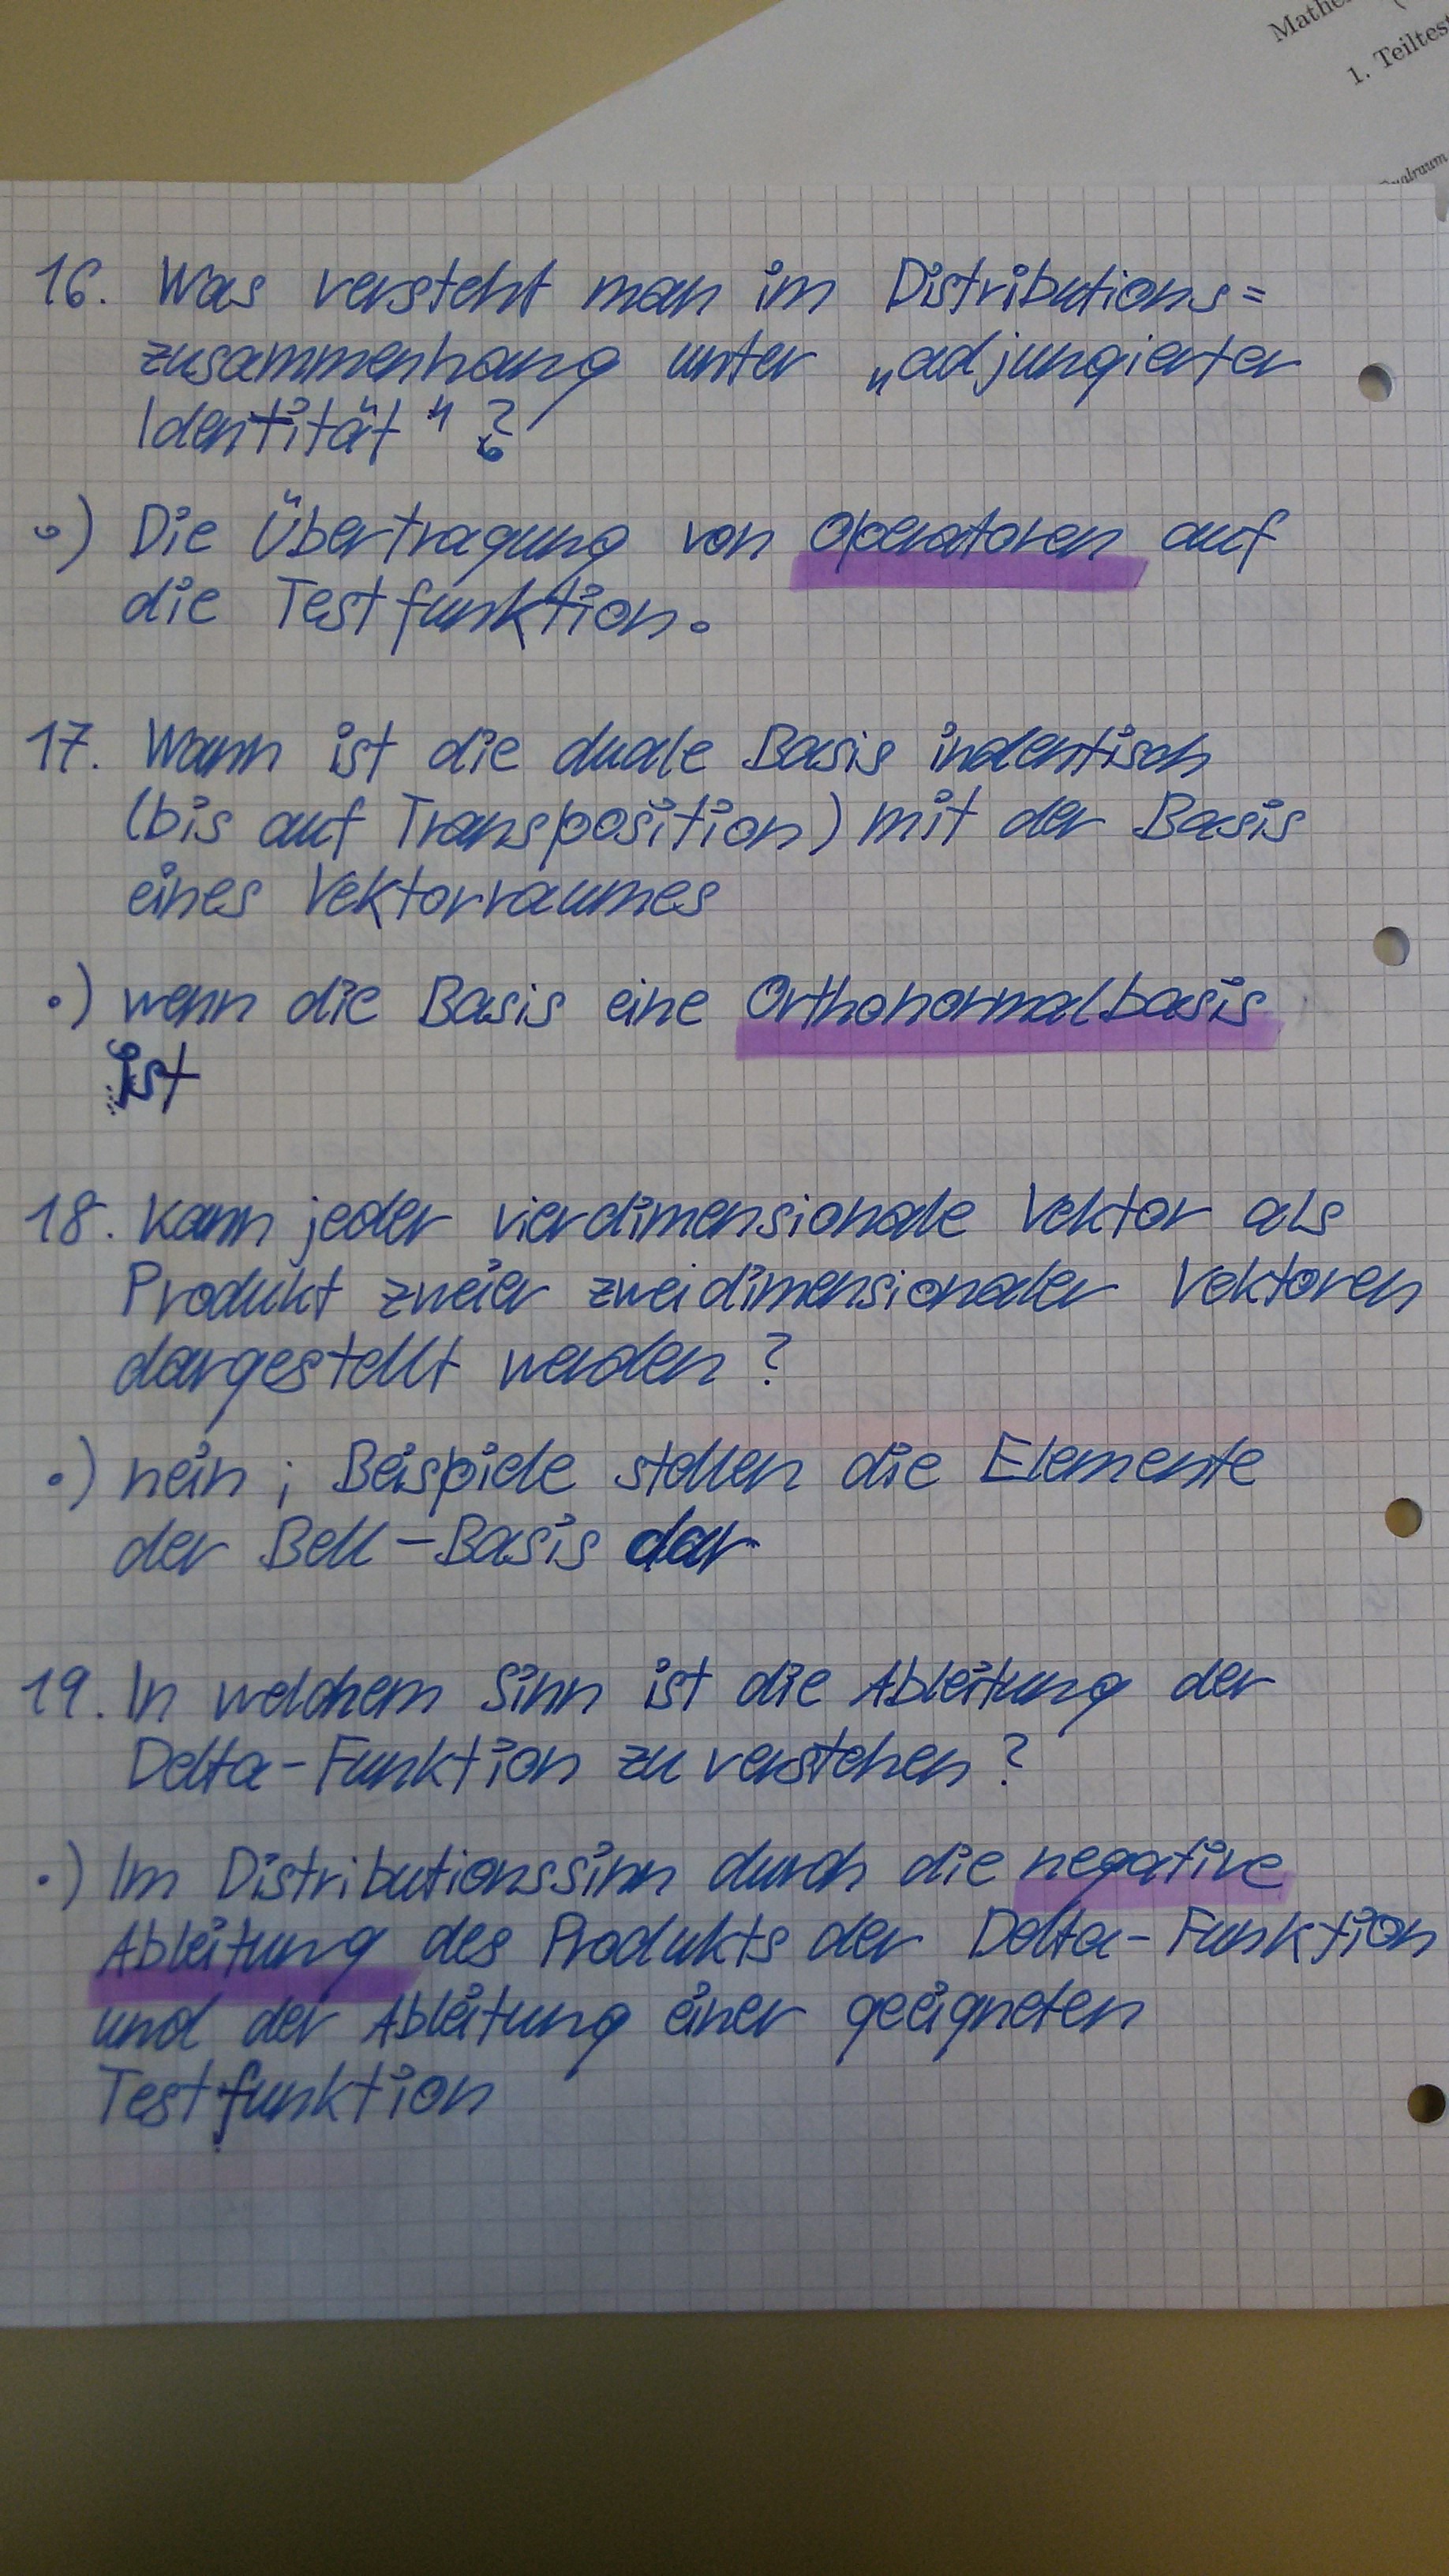 Mathe
1. Teiltest
16. Was versteht man im Distributions=
zusammenhang unter „adjungierter
Identität" ?
•) Die Übertragung von Operatoren auf
die Testfunktion.
17. Wann ist die duale Basis indentisch
(bis auf Transposition) mit der Basis
eines Vektorraumes
•) wenn die Basis eine Orthonormalbasis
ist
18. Kann jeder vierdimensionale Vektor als
Produkt zweier zweidimensionaler Vektoren
dargestellt werden ?
•) nein ; Beispiele stellen die Elemente
der Bell-Basis dar
19. In welchem Sinn ist die Ableitung der
Delta-Funktion zu verstehen ?
•) Im Distributionssinn durch die negative
Ableitung des Produkts der Delta-Funktion
und der Ableitung einer geeigneten
Testfunktion